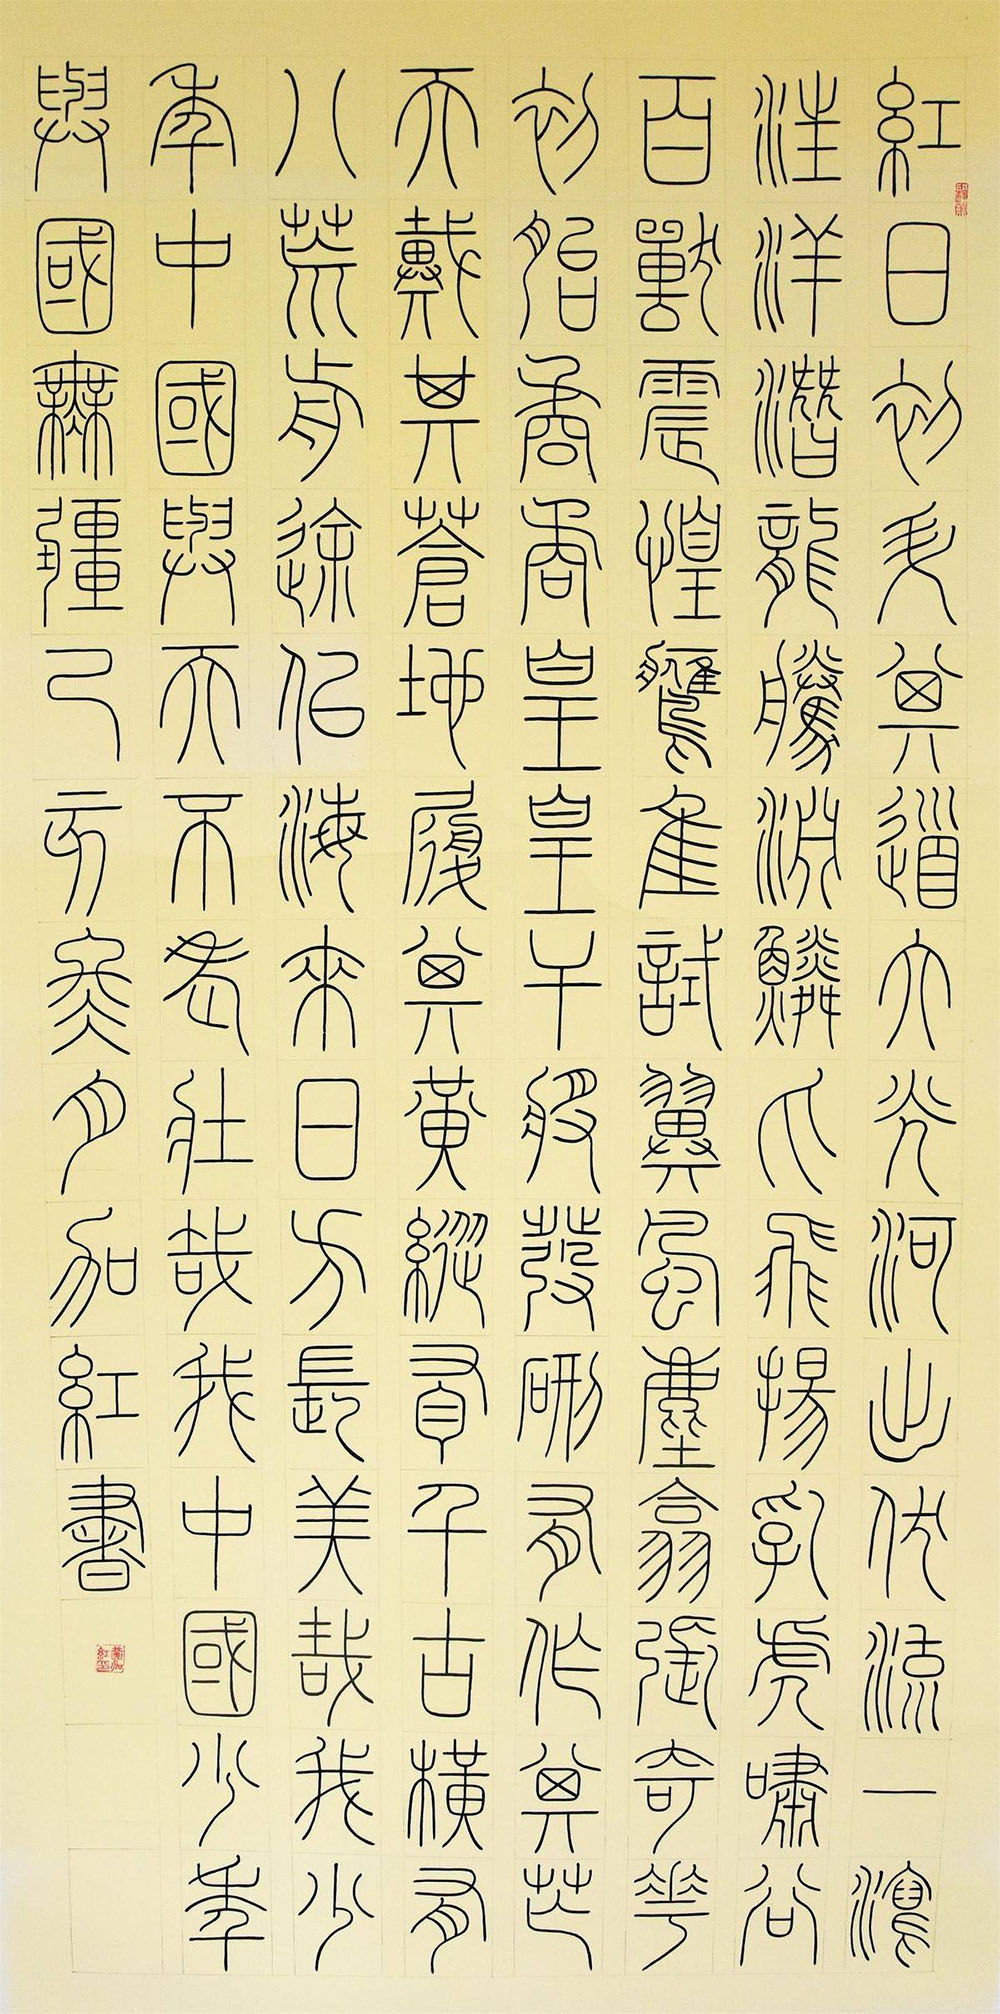 紅日初升其道大光河出伏流一瀉
汪洋潛龍騰淵鱗爪飛揚乳虎嘯谷
百獸震惶鷹隼試翼風塵翕張奇花
初胎矞矞皇皇干將發硎有作其芒
天戴其蒼地履其黃縱有千古橫有
八荒前途似海來日方長美哉我少
年中國與天不老壯哉我中國少年
與國無疆己亥冬月加紅書